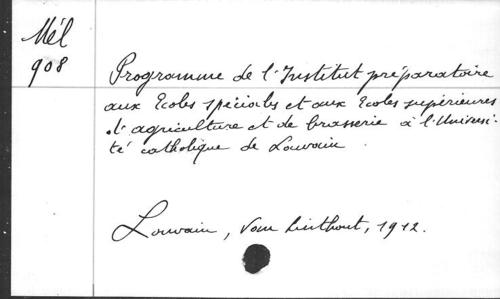 Mél
908
Programme de l'Institut préparatoire
aux Ecoles spéciales et aux Ecoles supérieures
d'agriculture et de brasserie à l'Universi-
té catholique de Louvain.
Louvain, Van Linthout, 1912.